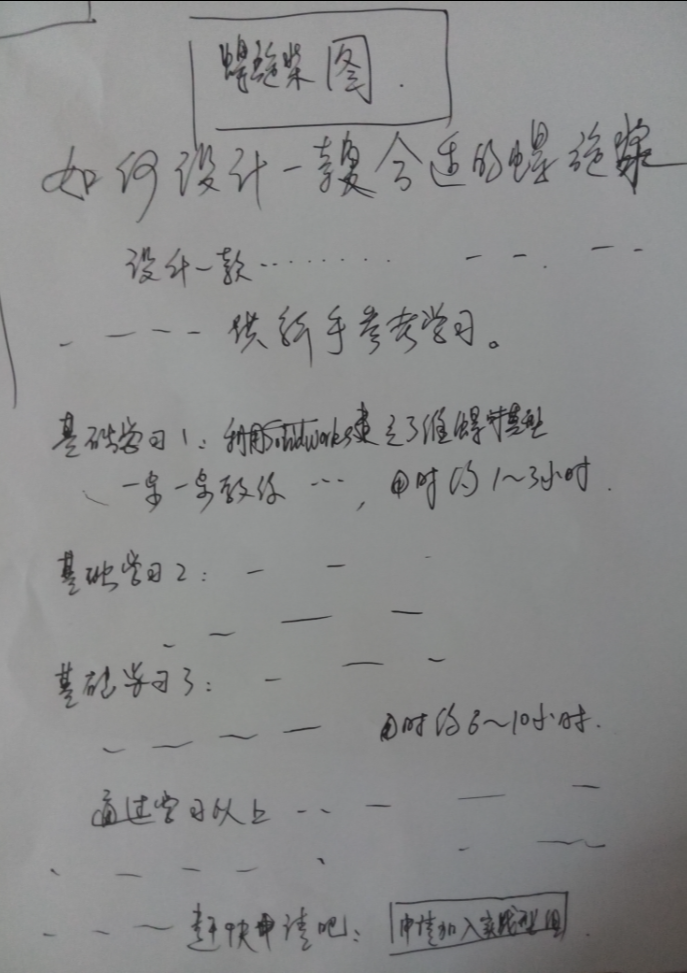 螺旋桨图.
如何设计一款合适的螺旋桨
设计一款········ — — . — —
— — — — 供新手参考学习。
基础学习1：利用Solidworks建立3维螺桨模型
一步一步教你 …，用时约1~3小时.
基础学习2： — — -
- — — —
基础学习3： - — -
— — — — 用时约6~10小时.
通过学习以上 -- — — —
- — — — - - —
- - — 赶快申请吧： 申请加入实践型组.